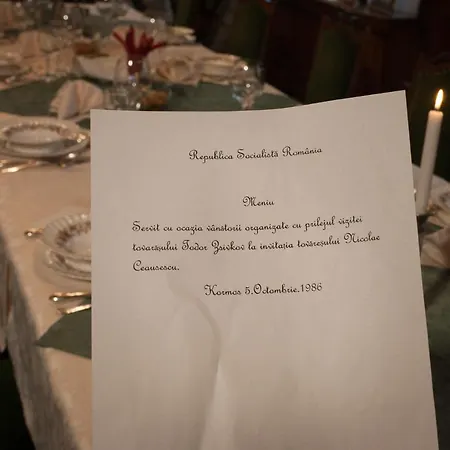 Republica Socialistă România
Meniu
Servit cu ocazia vânstorii organizate cu prilejul vizitei
tovarăşului Todor Zsivkov la invitaţia tovăreşului Nicolae
Ceausescu.
Kormos 5.Octombrie.1986